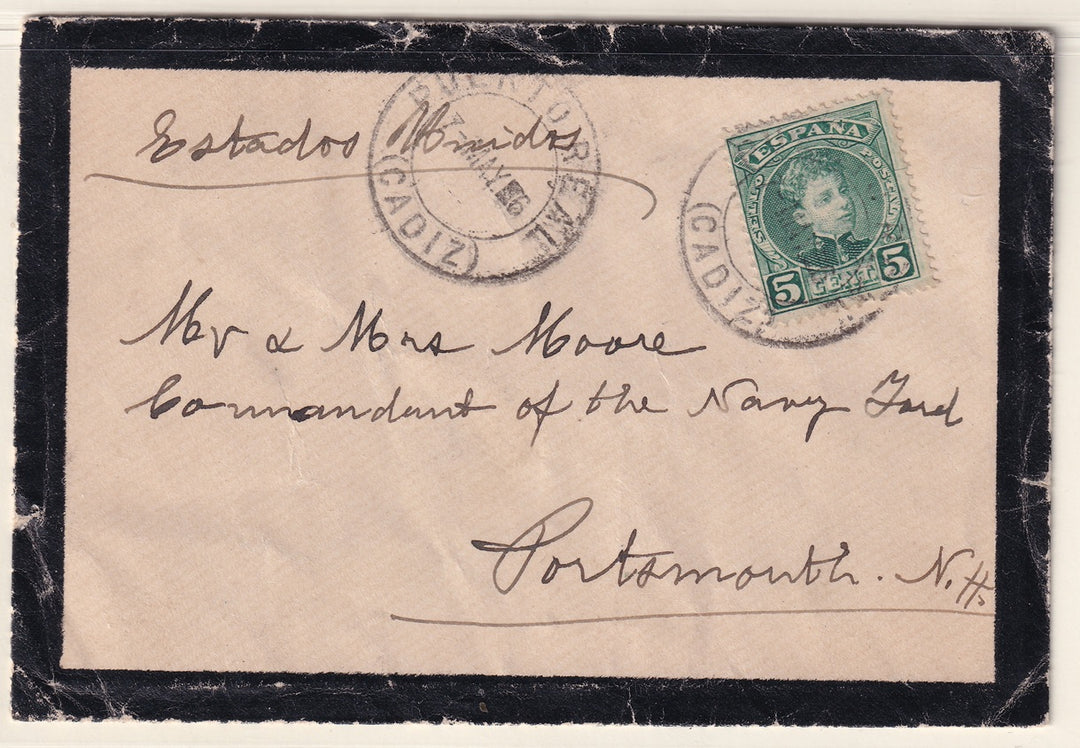 Estados Unidos
PUERTO REAL
MAY 06
(CADIZ)
ESPAÑA
POSTAL
5 CENT. 5
(CADIZ)
Mr & Mrs Moore
Commandant of the Navy Yard
Portsmouth. N.H.